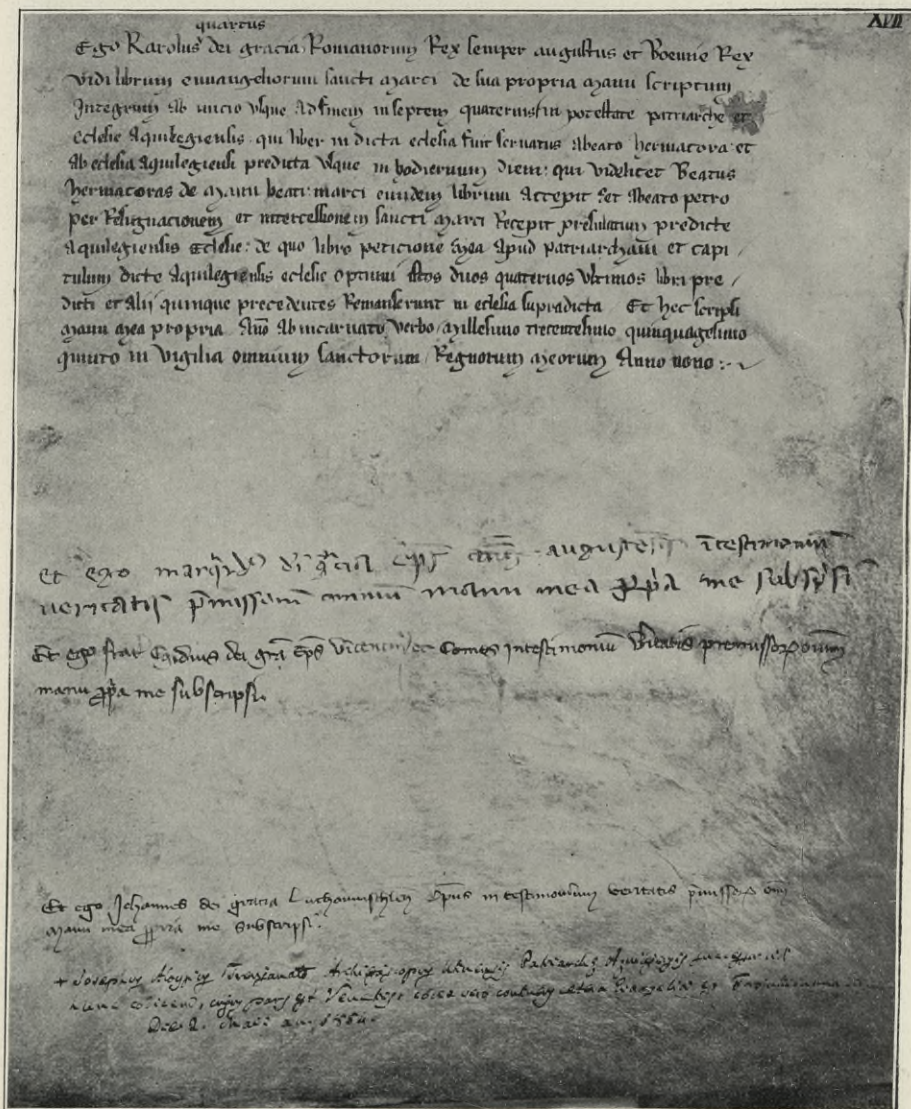 XVII
quartus
Ego Karolus dei gracia Romanorum Rex semper augustus et Boemie Rex
vidi librum ewangeliorum sancti marci de sua propria manu scriptum
Integrum ab inicio usque ad finem in septem quaternis in potestate patriarche et
eclesie aquilegiensis. qui liber in dicta eclesia fuit servatus a beato hermacora et
ab eclesia aquilegiensi predicta usque in hodiernum diem: qui videlicet Beatus
hermacoras de manu beati marci eundem librum accepit : et a beato petro
per Resignacionem et intercessionem sancti marci Recepit presulatum predicte
aquilegiensis eclesie: de quo libro peticione mea apud patriarcham et capi/
tulum dicte aquilegiensis eclesie optinui istos duos quaternos ultimos libri pre/
dicti et alii quinque precedentes Remanserunt in eclesia supradicta Et hec scripsi
manu mea propria Ano ab incarnato verbo millesimo trecentesimo quinquagesimo
quinto in vigilia omnium sanctorum Regnorum meorum Anno nono:
et ego marqrdg di gracia eps augusten in testimonium
veritatis pmissorum omnium manu mea ppa me subspsi
Et ego frat Egidius dei gra eps vicentin et Comes in testimonium veritatis premissorum omium
manu ppa me subscripsi.
Et ego Johannes dei gracia Luthomuschlen Epus in testimonium veritatis pmissorum omi
manu mea ppria me subscripsi.
+ Josephus Aloysius Trevisanato Archiepiscopus